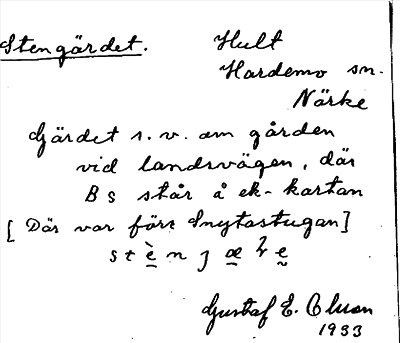 Stengärdet. Hult
Hardemo sn.
Närke
Gärdet s. v. om gården
vid landsvägen, där
Bs står å ek-kartan
[Där var förr Snytastugan]
Gustaf E. Olson
1933